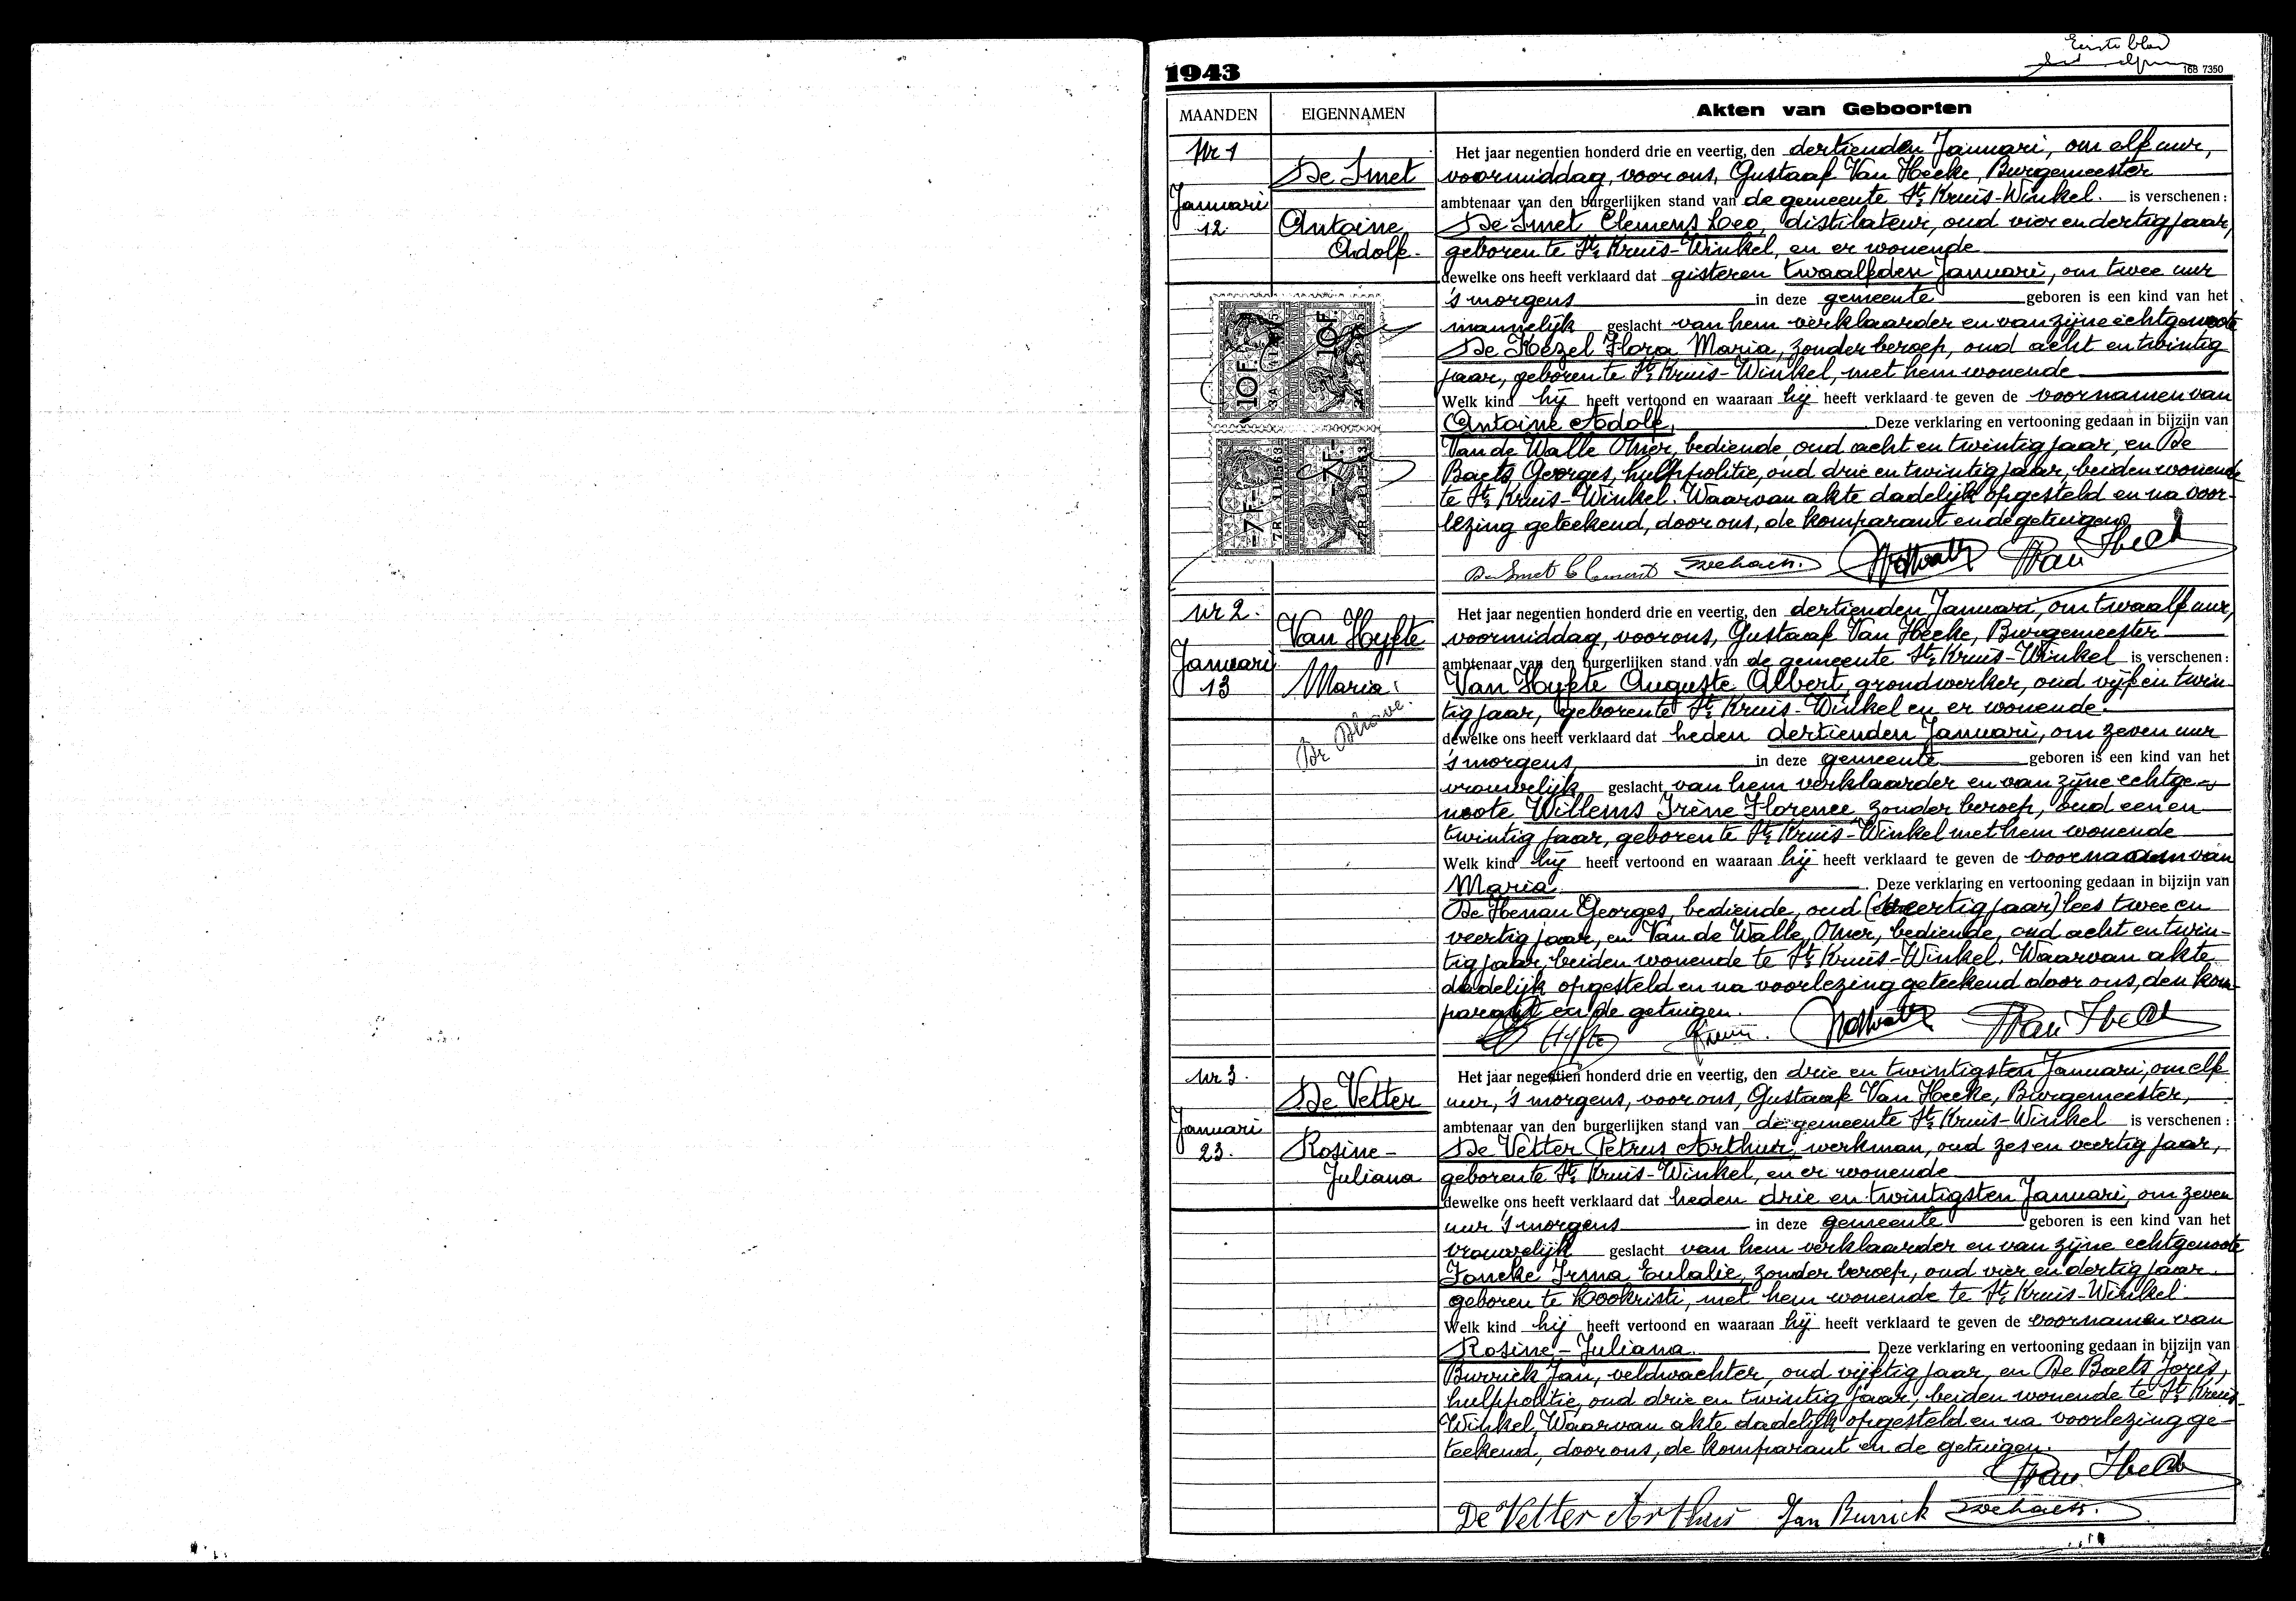 Eerste blad
1943
168 7350
MAANDEN
EIGENNAMEN
Akten van Geboorten
Nr 1
Januari
12
De Smet
Antoine
Adolf.
Het jaar negentien honderd drie en veertig, den dertienden Januari, om elf uur,
voormiddag, voor ons, Gustaaf Van Hecke, Burgemeester
ambtenaar van den burgerlijken stand van de gemeente St Kruis-Winkel. is verschenen:
De Smet Clemens Leo, distilateur, oud vier en dertig jaar,
geboren te St Kruis-Winkel, en er wonende
dewelke ons heeft verklaard dat gisteren twaalfden Januari, om twee uur
's morgens in deze gemeente geboren is een kind van het
mannelijk geslacht van hem verklaarder en van zijne echtgenoote
De Kezel Flora Maria, zonder beroep, oud acht en twintig
jaar, geboren te St Kruis-Winkel, met hem wonende
Welk kind hij heeft vertoond en waaraan hij heeft verklaard te geven de voornamen van
Antoine Adolf. Deze verklaring en vertooning gedaan in bijzijn van
Van de Walle Omer, bediende, oud acht en twintig jaar, en De
Baets Georges, hulppolitie, oud drie en twintig jaar, beiden wonende
te St Kruis-Winkel. Waarvan akte dadelijk opgesteld en na voor-
lezing geteekend, door ons, de komparant en de getuigen
10F. 10F.
-7F- -7F-
De Smet Clement
Nr 2.
Januari
13
Van Hyfte
Maria
Het jaar negentien honderd drie en veertig, den dertienden Januari, om twaalf uur,
voormiddag, voor ons, Gustaaf Van Hecke, Burgemeester
ambtenaar van den burgerlijken stand van de gemeente St Kruis-Winkel is verschenen:
Van Hyfte Auguste Albert, grondwerker, oud vijf en twin-
tig jaar, geboren te St Kruis-Winkel en er wonende.
dewelke ons heeft verklaard dat heden dertienden Januari, om zeven uur
's morgens in deze gemeente geboren is een kind van het
vrouwelijk geslacht van hem verklaarder en van zijne echtge-
noote Willems Irène Florence, zonder beroep, oud een en
twintig jaar, geboren te St Kruis-Winkel met hem wonende
Welk kind hij heeft vertoond en waaraan hij heeft verklaard te geven de voornaam van
Maria. Deze verklaring en vertooning gedaan in bijzijn van
De Henau Georges, bediende, oud (veertig jaar) lees twee en
veertig jaar, en Van de Walle, Omer, bediende, oud acht en twin-
tig jaar, beiden wonende te St Kruis-Winkel. Waarvan akte
dadelijk opgesteld en na voorlezing geteekend door ons, den kom-
parant en de getuigen.
Hyfte
Nr 3.
Januari
23.
De Vetter
Rosine-
Juliana
Het jaar negentien honderd drie en veertig, den drie en twintigsten Januari, om elf
uur, 's morgens, voor ons, Gustaaf Van Hecke, Burgemeester,
ambtenaar van den burgerlijken stand van de gemeente St Kruis-Winkel is verschenen:
De Vetter Petrus Arthur, werkman, oud zes en veertig jaar,
geboren te St Kruis-Winkel, en er wonende
dewelke ons heeft verklaard dat heden drie en twintigsten Januari, om zeven
uur 's morgens in deze gemeente geboren is een kind van het
vrouwelijk geslacht van hem verklaarder en van zijne echtgenoote
Joncke Irma Eulalie, zonder beroep, oud vier en dertig jaar.
geboren te Lookristi, met hem wonende te St Kruis-Winkel.
Welk kind hij heeft vertoond en waaraan hij heeft verklaard te geven de voornamen van
Rosine-Juliana. Deze verklaring en vertooning gedaan in bijzijn van
Burrick Jan, veldwachter, oud vijftig jaar, en De Baets Joris,
hulppolitie, oud drie en twintig jaar, beiden wonende te St Kruis-
Winkel. Waarvan akte dadelijk opgesteld en na voorlezing ge-
teekend, door ons, de komparant en de getuigen.
De Vetter Arthur Jan Burrick